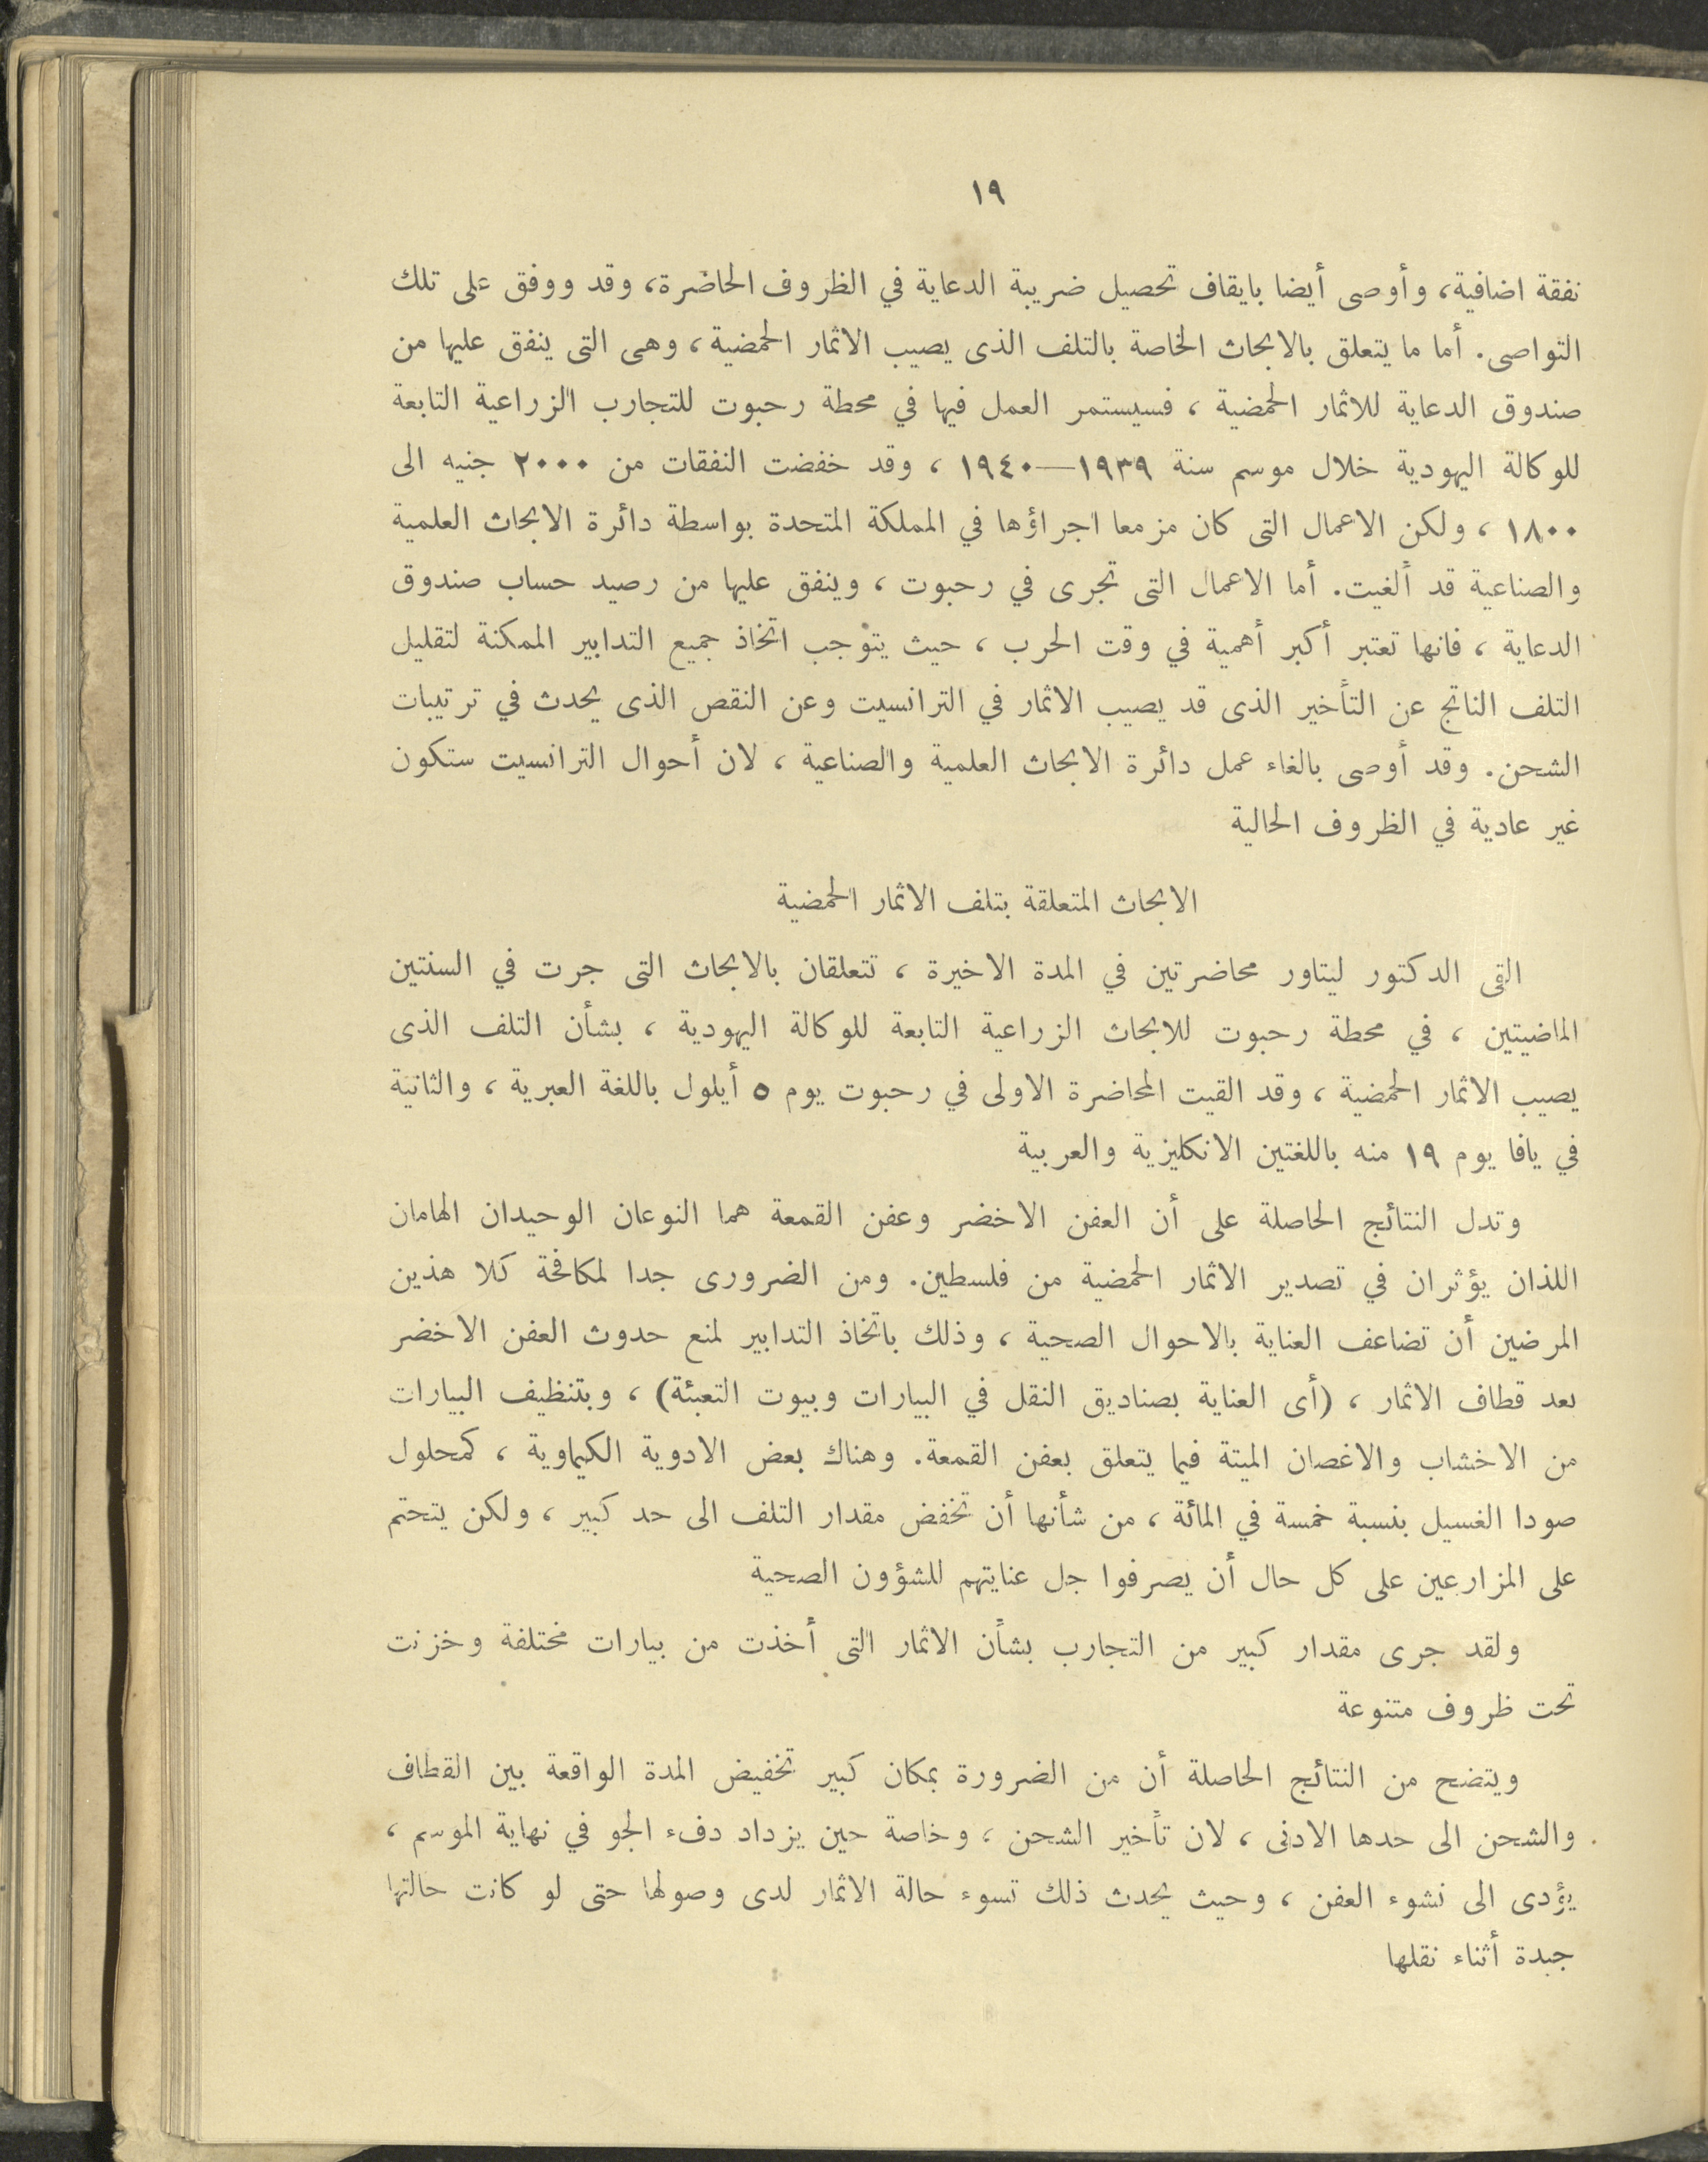 ١٩
نفقة اضافية، وأوصى أيضا بايقاف تحصيل ضريبة الدعاية في الظروف الحاضرة، وقد ووفق على تلك
التواصى. أما ما يتعلق بالابحاث الخاصة بالتلف الذى يصيب الاثمار الحمضية، وهى التى ينفق عليها من
صندوق الدعاية للاثمار الحمضية ، فسيستمر العمل فيها في محطة رحبوت للتجارب الزراعية التابعة
للوكالة اليهودية خلال موسم سنة ١٩٣٩—١٩٤٠ ، وقد خفضت النفقات من ٢٠٠٠ جنيه الى
١٨٠٠ ، ولكن الاعمال التى كان مزمعا اجراؤها في المملكة المتحدة بواسطة دائرة الابحاث العلمية
والصناعية قد ألغيت. أما الاعمال التى تجرى في رحبوت ، وينفق عليها من رصيد حساب صندوق
الدعاية ، فانها تعتبر أكبر أهمية في وقت الحرب ، حيث يتوجب اتخاذ جميع التدابير الممكنة لتقليل
التلف الناتج عن التأخير الذى قد يصيب الاثمار في الترانسيت وعن النقص الذى يحدث في ترتيبات
الشحن. وقد أوصى بالغاء عمل دائرة الابحاث العلمية والصناعية ، لان أحوال الترانسيت ستكون
غير عادية في الظروف الحالية
الابحاث المتعلقة بتلف الاثمار الحمضية
القى الدكتور ليتاور محاضرتين في المدة الاخيرة ، تتعلقان بالابحاث التى جرت في السنتين
الماضيتين ، في محطة رحبوت للابحاث الزراعية التابعة للوكالة اليهودية ، بشأن التلف الذى
يصيب الاثمار الحمضية ، وقد القيت المحاضرة الاولى في رحبوت يوم ٥ أيلول باللغة العبرية ، والثانية
في يافا يوم ١٩ منه باللغتين الانكليزية والعربية
وتدل النتائج الحاصلة على أن العفن الاخضر وعفن القمعة هما النوعان الوحيدان الهامان
اللذان يؤثران في تصدير الاثمار الحمضية من فلسطين. ومن الضرورى جدا لمكافحة كلا هذين
المرضين أن تضاعف العناية بالاحوال الصحية ، وذلك باتخاذ التدابير لمنع حدوث العفن الاخضر
بعد قطاف الاثمار ، (أى العناية بصناديق النقل في البيارات وبيوت التعبئة) ، وبتنظيف البيارات
من الاخشاب والاغصان الميتة فيما يتعلق بعفن القمعة. وهناك بعض الادوية الكيماوية ، كمحلول
صودا الغسيل بنسبة خمسة في المائة ، من شأنها أن تخفض مقدار التلف الى حد كبير ، ولكن يتحتم
على المزارعين على كل حال أن يصرفوا جل عنايتهم للشؤون الصحية
ولقد جرى مقدار كبير من التجارب بشأن الاثمار التى أخذت من بيارات مختلفة وخزنت
تحت ظروف متنوعة
ويتضح من النتائج الحاصلة أن من الضرورة بمكان كبير تخفيض المدة الواقعة بين القطاف
والشحن الى حدها الادنى ، لان تأخير الشحن ، وخاصة حين يزداد دفء الجو في نهاية الموسم ،
يؤدى الى نشوء العفن ، وحيث يحدث ذلك تسوء حالة الاثمار لدى وصولها حتى لو كانت حالتها
جيدة أثناء نقلها